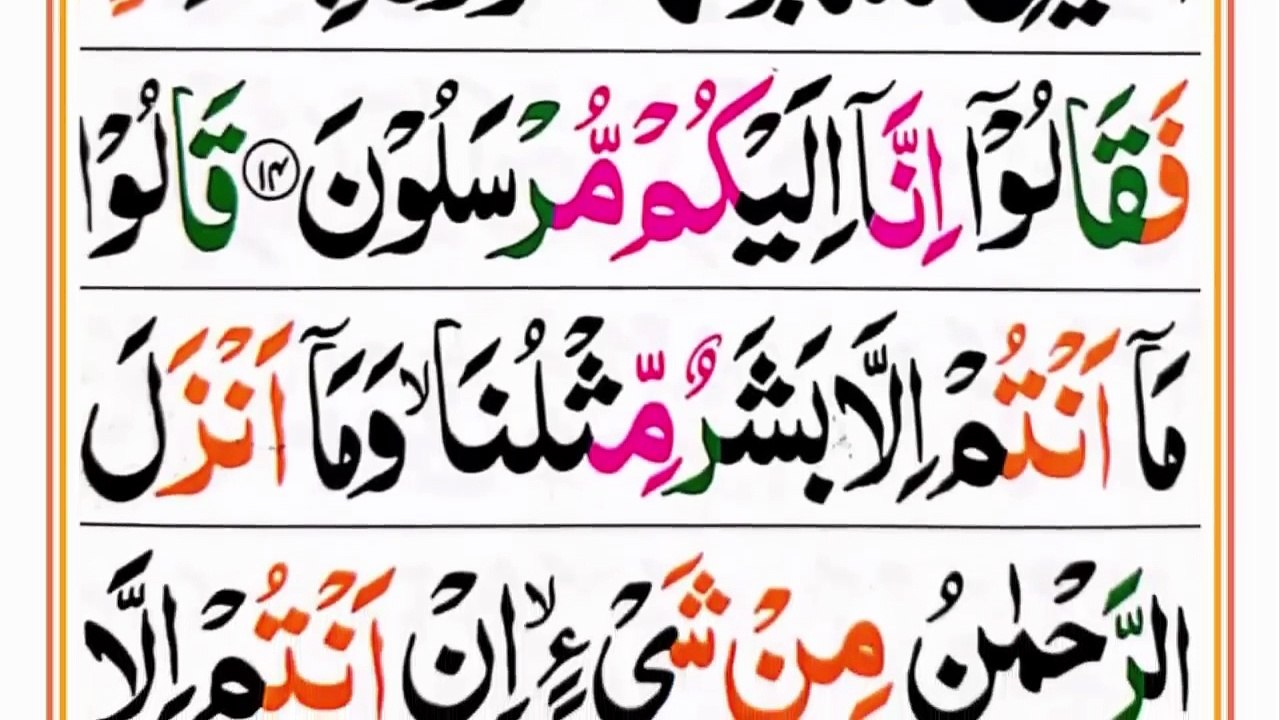 فَقَالُوْۤا اِنَّاۤ اِلَيْكُمْ مُّرْسَلُوْنَ ﴿۱۴﴾ قَالُوْا
مَاۤ اَنْتُمْ اِلَّا بَشَرٌ مِّثْلُنَا ۙ وَمَاۤ اَنْزَلَ
الرَّحْمٰنُ مِنْ شَیْءٍ ۙ اِنْ اَنْتُمْ اِلَّا